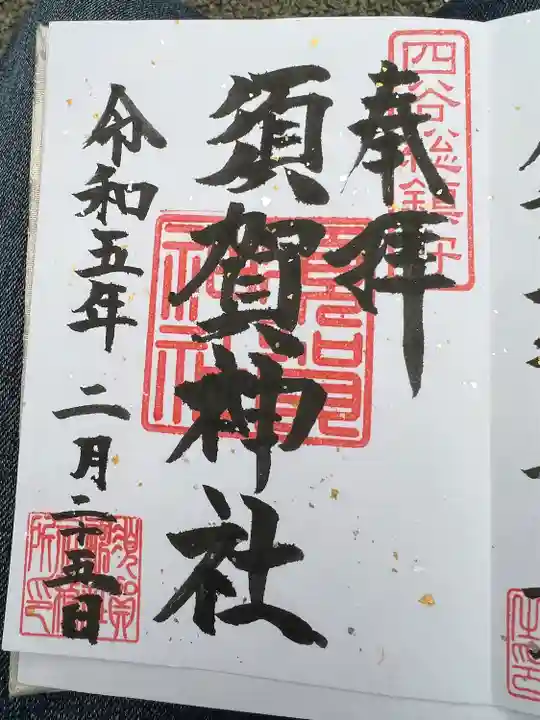 四谷総鎮守
奉拝
須賀神社
須賀神社
令和五年 二月二十五日